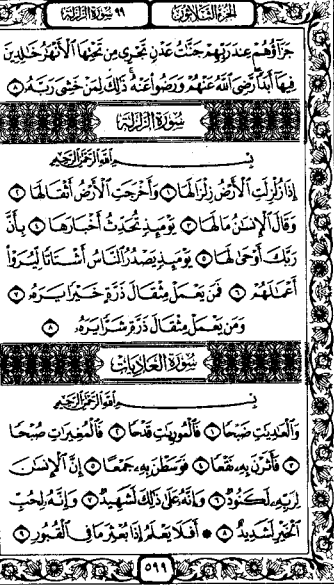 الجزء الثلاثون ٩٩ سورة الزلزلة
جَزَآؤُهُمْ عِندَ رَبِّهِمْ جَنَّٰتُ عَدْنٍ تَجْرِى مِن تَحْتِهَا ٱلْأَنْهَٰرُ خَٰلِدِينَ
فِيهَآ أَبَدًا رَّضِىَ ٱللَّهُ عَنْهُمْ وَرَضُوا۟ عَنْهُ ذَٰلِكَ لِمَنْ خَشِىَ رَبَّهُۥ ٨
سورة الزلزلة
بِسْمِ ٱللَّهِ ٱلرَّحْمَٰنِ ٱلرَّحِيمِ
إِذَا زُلْزِلَتِ ٱلْأَرْضُ زِلْزَالَهَا ١ وَأَخْرَجَتِ ٱلْأَرْضُ أَثْقَالَهَا ٢
وَقَالَ ٱلْإِنسَٰنُ مَا لَهَا ٣ يَوْمَئِذٍ تُحَدِّثُ أَخْبَارَهَا ٤ بِأَنَّ
رَبَّكَ أَوْحَىٰ لَهَا ٥ يَوْمَئِذٍ يَصْدُرُ ٱلنَّاسُ أَشْتَاتًا لِّيُرَوْا۟
أَعْمَٰلَهُمْ ٦ فَمَن يَعْمَلْ مِثْقَالَ ذَرَّةٍ خَيْرًا يَرَهُۥ ٧
وَمَن يَعْمَلْ مِثْقَالَ ذَرَّةٍ شَرًّا يَرَهُۥ ٨
سورة العاديات
بِسْمِ ٱللَّهِ ٱلرَّحْمَٰنِ ٱلرَّحِيمِ
وَٱلْعَٰدِيَٰتِ ضَبْحًا ١ فَٱلْمُورِيَٰتِ قَدْحًا ٢ فَٱلْمُغِيرَٰتِ صُبْحًا
٣ فَأَثَرْنَ بِهِۦ نَقْعًا ٤ فَوَسَطْنَ بِهِۦ جَمْعًا ٥ إِنَّ ٱلْإِنسَٰنَ
لِرَبِّهِۦ لَكَنُودٌ ٦ وَإِنَّهُۥ عَلَىٰ ذَٰلِكَ لَشَهِيدٌ ٧ وَإِنَّهُۥ لِحُبِّ
ٱلْخَيْرِ لَشَدِيدٌ ٨ ۞ أَفَلَا يَعْلَمُ إِذَا بُعْثِرَ مَا فِى ٱلْقُبُورِ ٩
٥٩٩